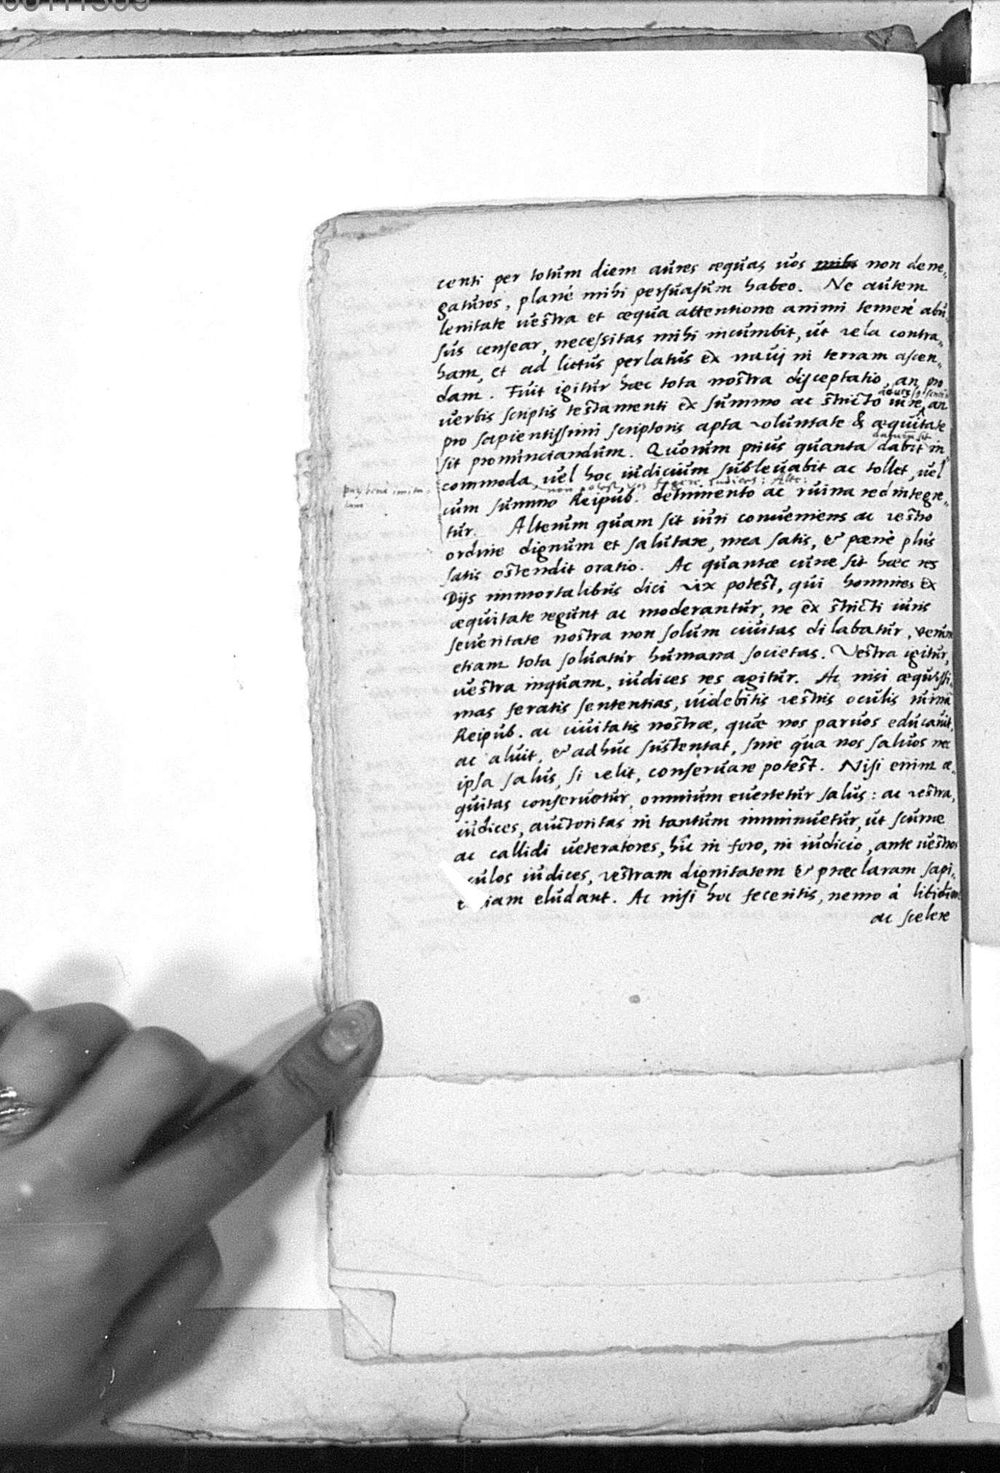 centi per totum diem aures æquas uos mihi non dene,
gaturos, planè mihi persuasum habeo. Ne autem
lenitate uestra et æqua attentione animi temerè abu,
sus censear, necessitas mihi incumbit, ut vela contra,
ham, et ad littus perlatus ex naui in terram ascen,
dam. Fuit igitur hæc tota nostra disceptatio, an pro
uerbis scriptis testamenti ex summo ac stricto iure, an
pro sapientissimi scriptoris apta voluntate & æquitate
sit pronunciandum. Quorum prius quanta dabit in
commoda, uel hoc iudicium subleuabit ac tollet, uel
non potest, vos iudices:
cum summo Reipub. detrimento ac ruina redintegre,
tur. Alterum quam sit iuri conueniens ac vestro
ordine dignum et salutare, mea satis, & pænè plus
satis ostendit oratio. Ac quantæ curæ sit hæc res
Dijs immortalibus dici vix potest, qui homines ex
æquitate regunt ac moderantur, ne ex stricti iuris
seueritate nostra non solum ciuitas dilabatur, verum
etiam tota soluatur humana societas. Vestra igitur,
uestra inquam, iudices res agitur. Ac nisi æquissi,
mas feratis sententias, uidebitis vestris oculis ruinam
Reipub. ac ciuitatis nostræ, quæ nos paruos educauit,
ac aluit, & adhuc sustentat, sine qua nos saluos nec
ipsa salus, si velit, conseruare potest. Nisi enim æ,
quitas conseruetur, omnium euertetur salus: ac vestra,
iudices, auctoritas in tantum imminuetur, ut scurræ
ac callidi ueteratores, hic in foro, in iudicio, ante uestros
culos iudices, vestram dignitatem & præclaram sapi,
iam eludant. Ac nisi hoc feceritis, nemo à
ac scelere